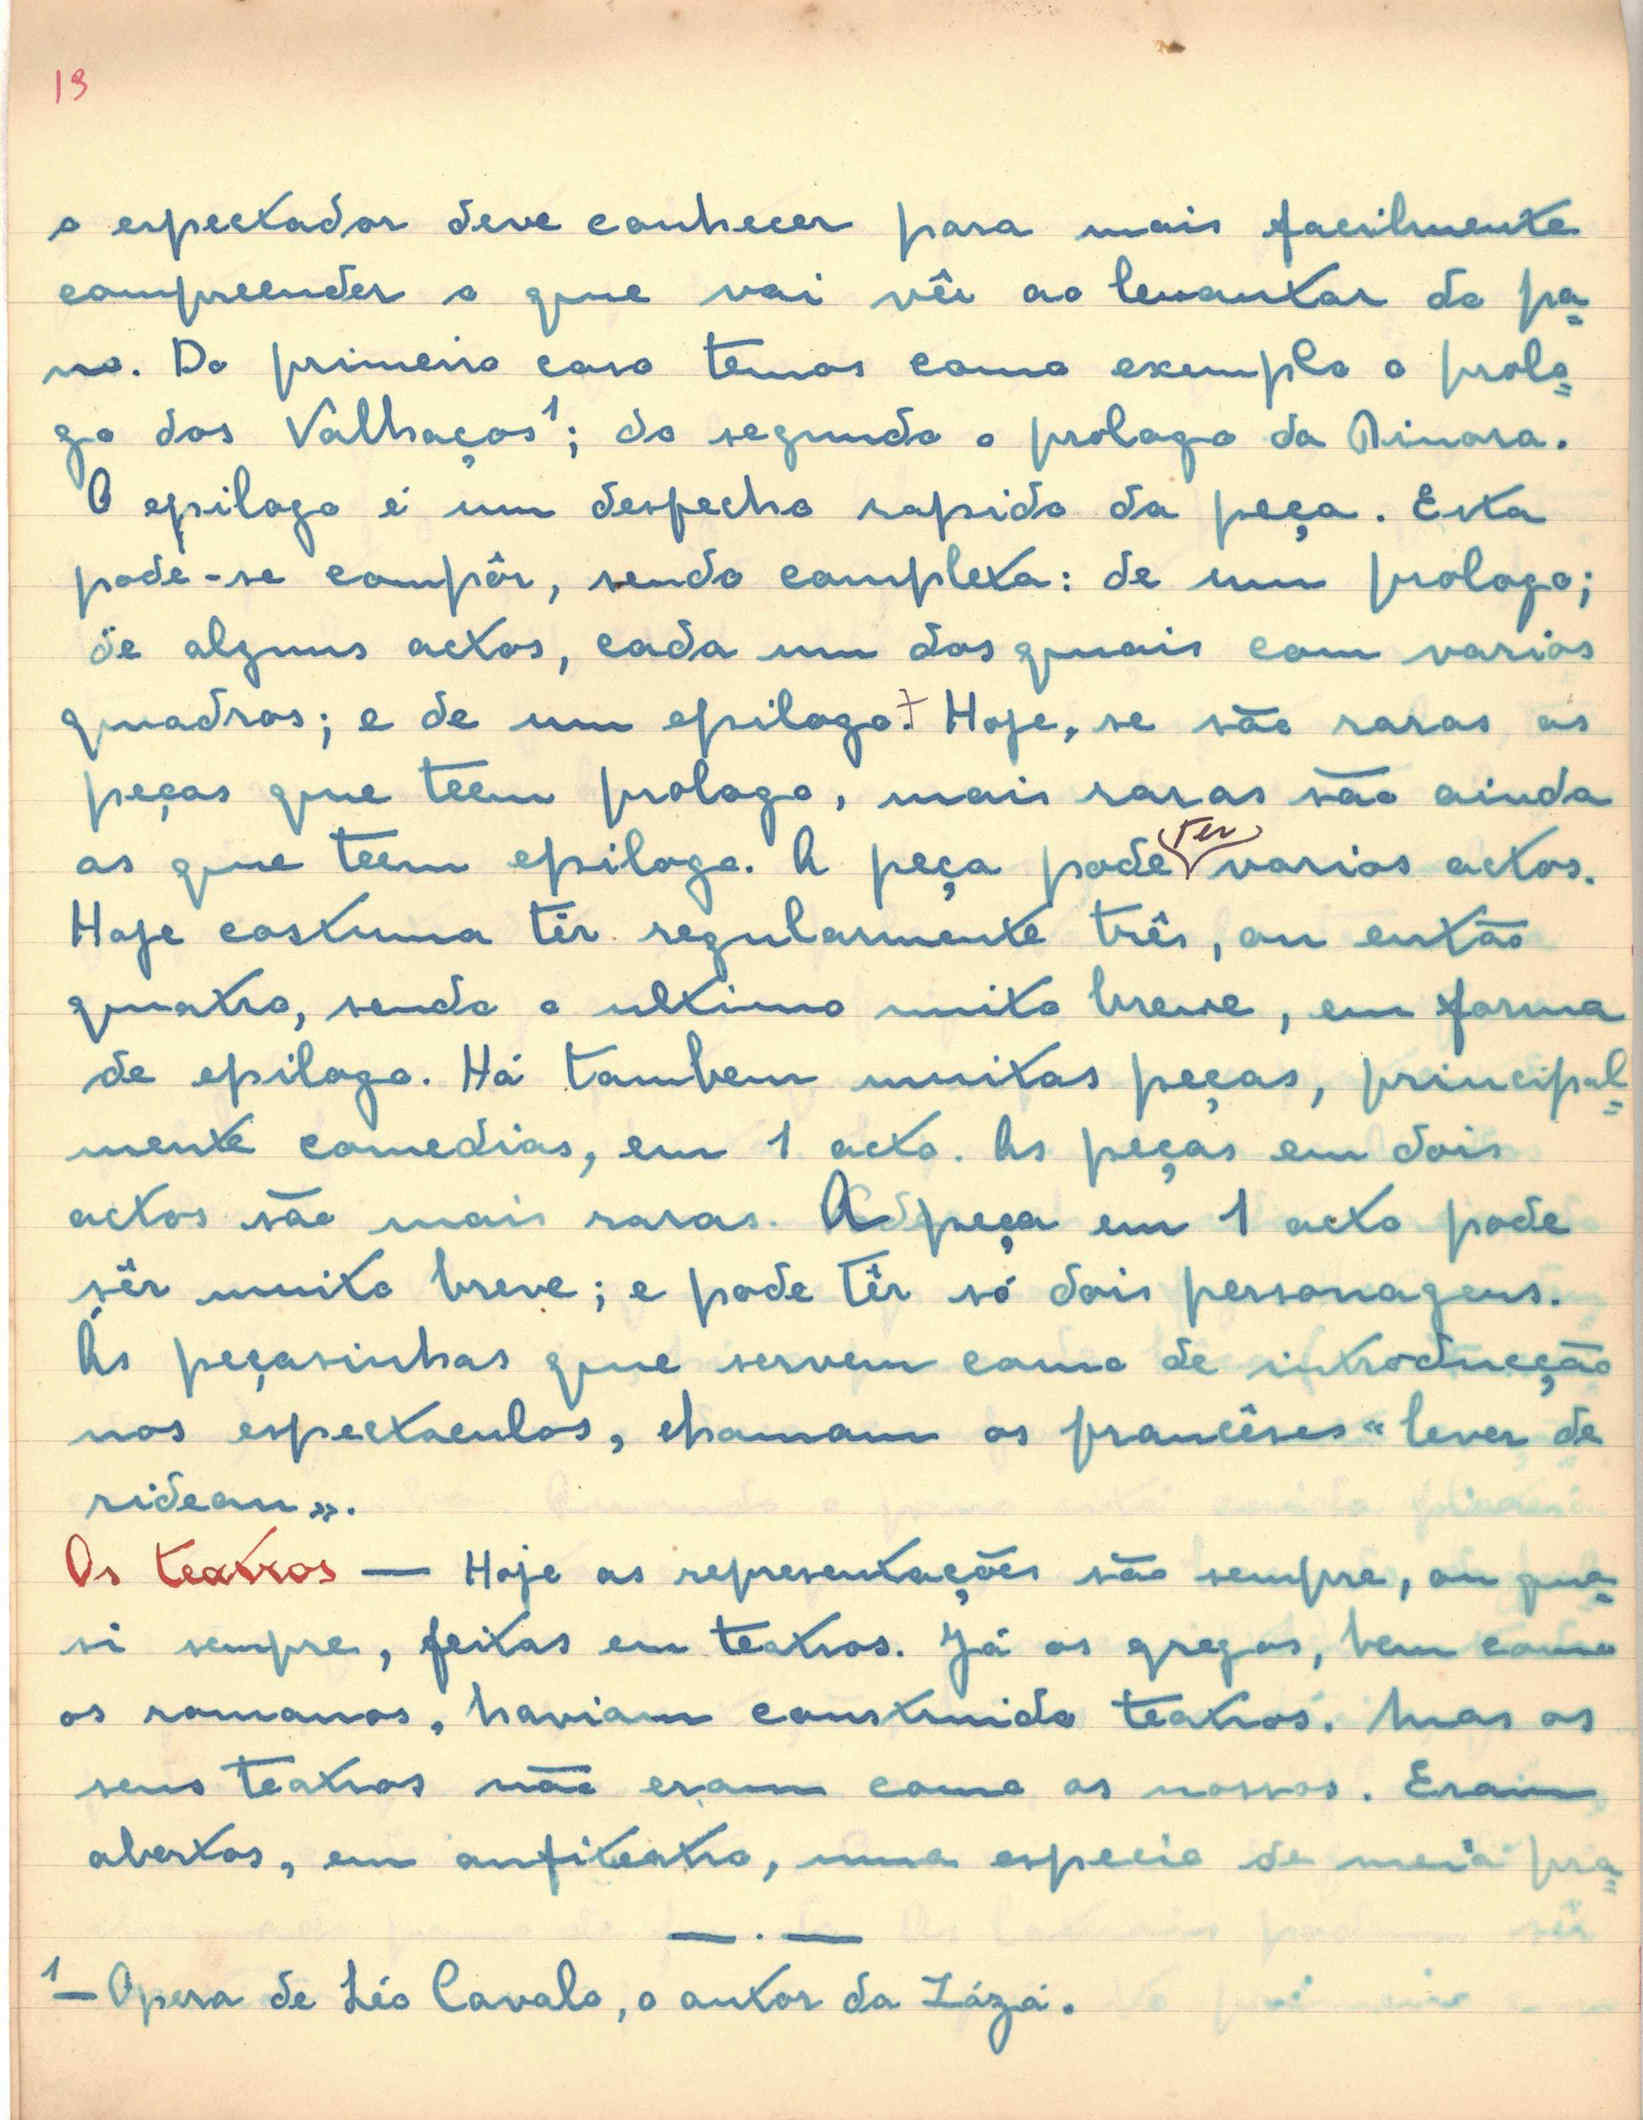 19
o espectador deve conhecer para mais facilmente
compreender o que vai vêr ao levantar do pa=
no. Do primeiro caso temos como exemplo o prolo=
go dos Valhaços¹; do segundo o prologo da Dinora.
O epilogo é um desfecho rapido da peça. Esta
pode-se compôr, sendo complexa: de um prologo;
de alguns actos, cada um dos quais com varios
quadros; e de um epilogo. Hoje, se são raras as
peças que teem prologo, mais raras são ainda
as que teem epilogo. A peça pode ter varios actos.
Hoje costuma têr regularmente três, ou então
quatro, sendo o ultimo muito breve, em forma
de epilogo. Há tambem muitas peças, principal=
mente comedias, em 1 acto. As peças em dois
actos são mais raras. A peça em 1 acto pode
sêr muito breve; e pode têr só dois personagens.
Ás peçasinhas que servem como de introducção
nos espectaculos, chamam os francêses «lever de
rideau».
Os teatros — Hoje as representações são sempre, ou qua=
si sempre, feitas em teatros. Já os gregos, bem como
os romanos, haviam construido teatros. Mas os
seus teatros não eram como os nossos. Eram
abertos, em anfiteatro, uma especie de meia pra=
1 — Opera de Léo Cavalo, o autor da Zázá.